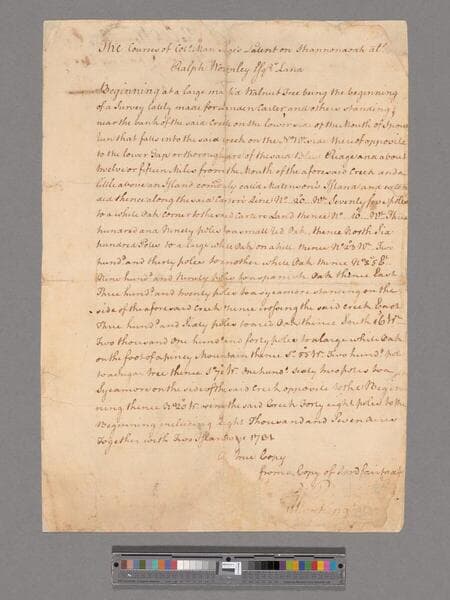 The Courses of Col.o Man Page's Patent on Shannonaoah als.
Ralph Wormley Esqr. Land
Beginning at a large mark'd Walnut Tree being the beginning
of a Survey lately made for Landon Carter, and others standing
near the bank of the said Creek on the lower side of the Mouth of
Run that falls into the said Creek on the No. Wt. side thereof opposite
to the lower Gap or thoroughfare of the said Blue Ridge and about
twelve or fifteen Miles from the Mouth of the aforesaid Creek and a
little above an Island comonly calld Matenson's Island and
thence along the said Carter's Line No. 20 Wt. Seventy five poles
to a white Oak Corner to the said Carters Land thence No. 10 Wt. Three
hundred and Ninety poles to a small Red Oak, thence North Six
hundred Poles to a large white Oak on a hill, thence No. 23 Wt. Two
hundd. and thirty poles to another white Oak thence No. 25 Et.
Nine hundd. and Ninety poles to a Spanish Oak thence East
Three hundd. and twenty poles to a Sycamore standing on the
side of the aforesaid Creek thence crossing the said Creek East
Three hundd. and Sixty poles to a red Oak thence South 16 Wt.
Two thousand One hundd. and forty poles to a large white Oak
on the foot of a piney Mountain thence So. 88 Wt. Two hundd. poles
to a hiccory tree thence So. 72 Wt. One hundd. Sixty two poles to a
Sycamore on the side of the said Creek opposite to the Begin-
ning thence No. 20 Wt. over the said Creek Forty eight poles to the
Beginning including Eight Thousand and Seven Acres
Together with Two Islands 1731
A True Copy
from a Copy of Lord Fairfax's